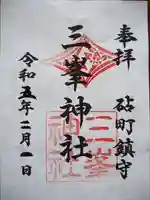 奉拝
砧町鎮守
三峯神社
三峯
神社
令和五年二月一日